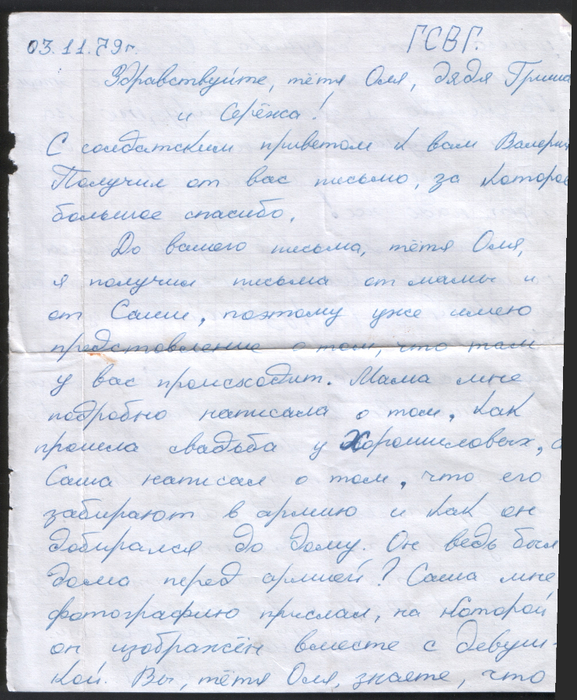 03.11.79г. ГСВГ.
Здравствуйте, тётя Оля, дядя Гриша
и Серёжа!
С солдатским приветом к вам Валерий
Получил от вас письмо, за которое
большое спасибо.
До вашего письма, тётя Оля,
я получил письма от мамы и
от Саши, поэтому уже имею
представление о том, что там
у вас происходит. Мама мне
подробно написала о том, как
прошла свадьба у Хорошиловых, а
Саша написал о том, что его
забирают в армию и как он
добирался до дому. Он ведь был
дома перед армией? Саша мне
фотографию прислал, на которой
он изображён вместе с девуш-
кой. Вы, тётя Оля, знаете, что